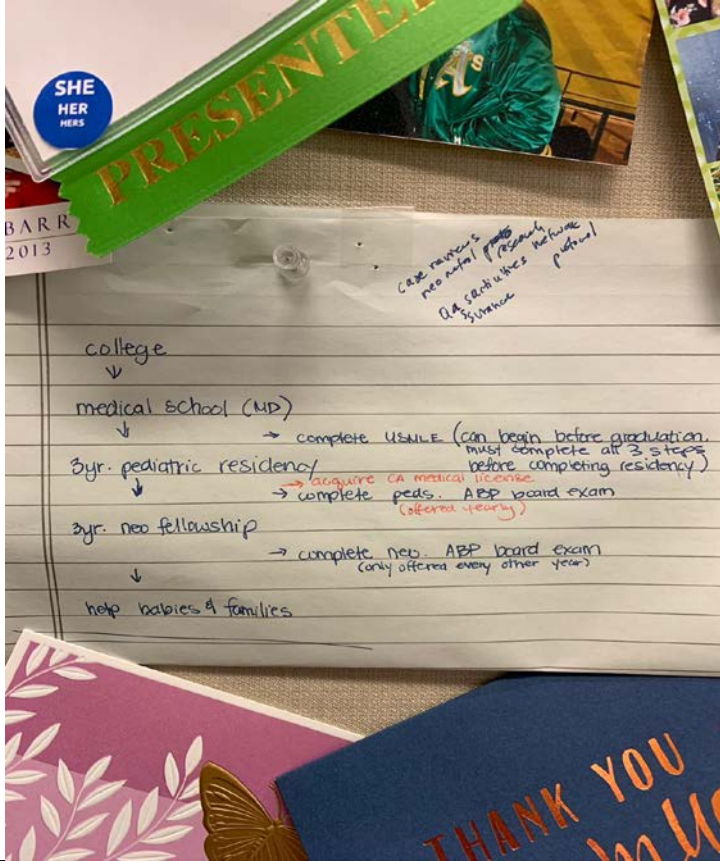 SHE
HER
HERS
PRESENTE
A's
BARR
2013
case reviews
neonatal research
network
protocol
college
↓
medical school (MD)
↓
→ complete USMLE (can begin before graduation.
must complete all 3 steps
before completing residency)
3yr. pediatric residency
→ acquire CA medical license
↓
→ complete peds. ABP board exam
(offered yearly)
3yr. neo fellowship
→ complete neo. ABP board exam
(only offered every other year)
↓
help babies & families
THANK YOU